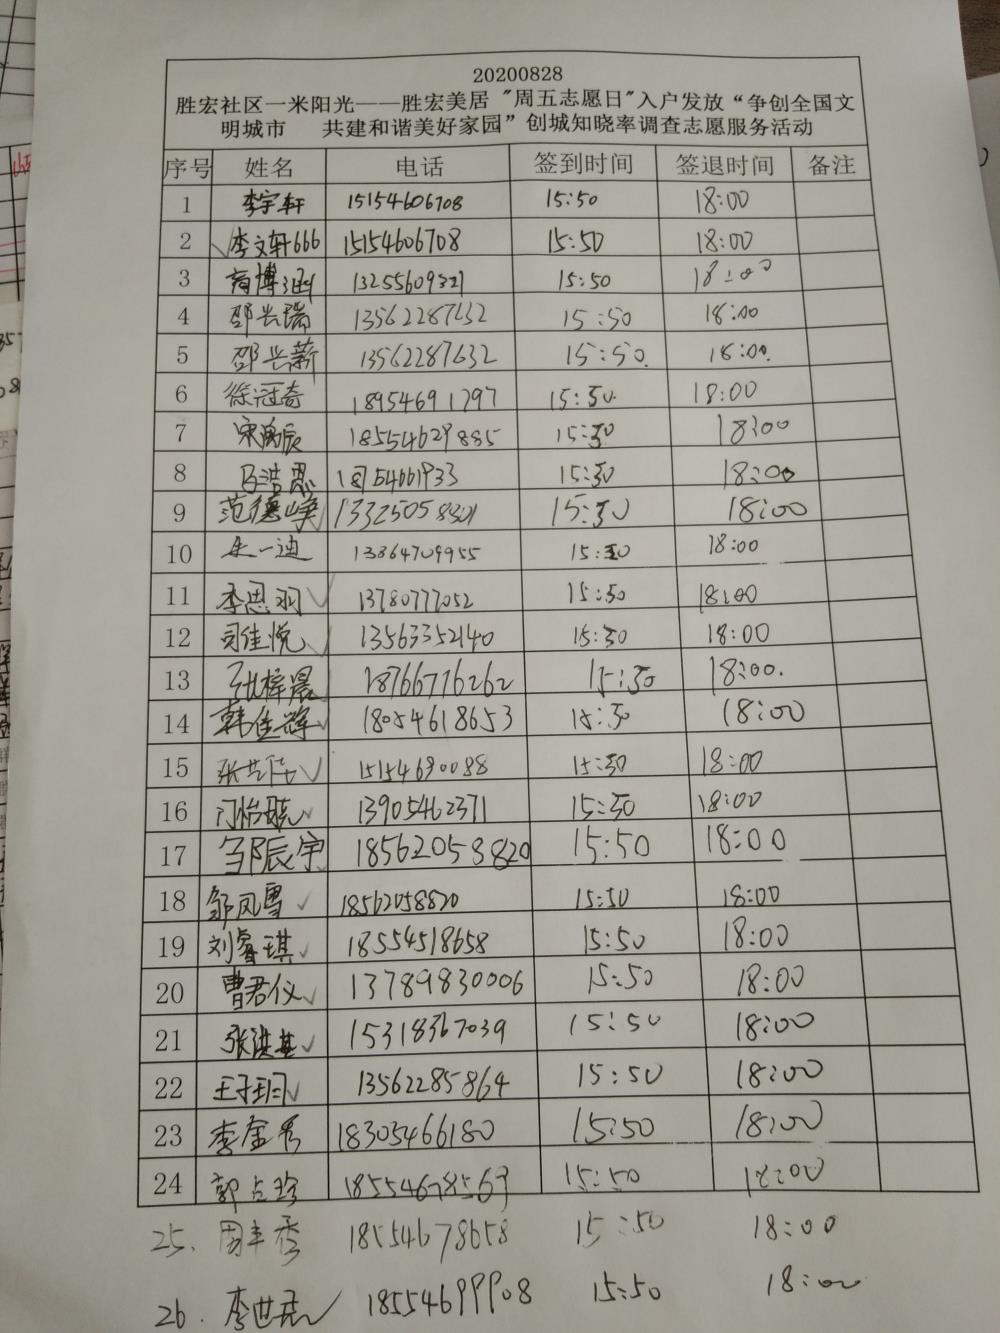 20200828
胜宏社区一米阳光——胜宏美居 "周五志愿日"入户发放“争创全国文
明城市 共建和谐美好家园”创城知晓率调查志愿服务活动
序号 姓名 电话 签到时间 签退时间 备注
1 李宇轩 15154606708 15:50 18:00
2 李文轩666 15154606708 15:50 18:00
3 商博涵 13255609321 15:50 18:00
4 邵长瑞 13562287632 15:50 18:00
5 邵长薪 13562287632 15:50. 18:00.
6 徐冠奇 18954691797 15:50. 18:00
7 宋禹辰 18554629885 15:50 18:00
8 15:50 18:00
9 范德峥 13325058321 15:50 18:00
10 朱一迪 13864709955 15:50 18:00
11 李思羽 13780777052 15:50 18:00
12 司佳悦 13563352140 15:50 18:00
13 张梓晨 18766776262 15:50 18:00.
14 韩佳辉 18054618653 15:50 18:00
15 15154690088 15:50 18:00
16 门怡晓 13905463371 15:50 18:00
17 邹辰宇 18562058820 15:50 18:00
18 邹凤雪 18562058820 15:50 18:00
19 刘睿琪 18554518658 15:50 18:00
20 曹君仪 13789830006 15:50 18:00
21 张洪基 15318367039 15:50 18:00
22 王子玥 13562285864 15:50 18:00
23 李金秀 18305466180 15:50 18:00
24 郭占珍 18554678569 15:50 18:00
25. 周丰秀 18554678658 15:50 18:00
26. 李世君 18554699908 15:50 18:00